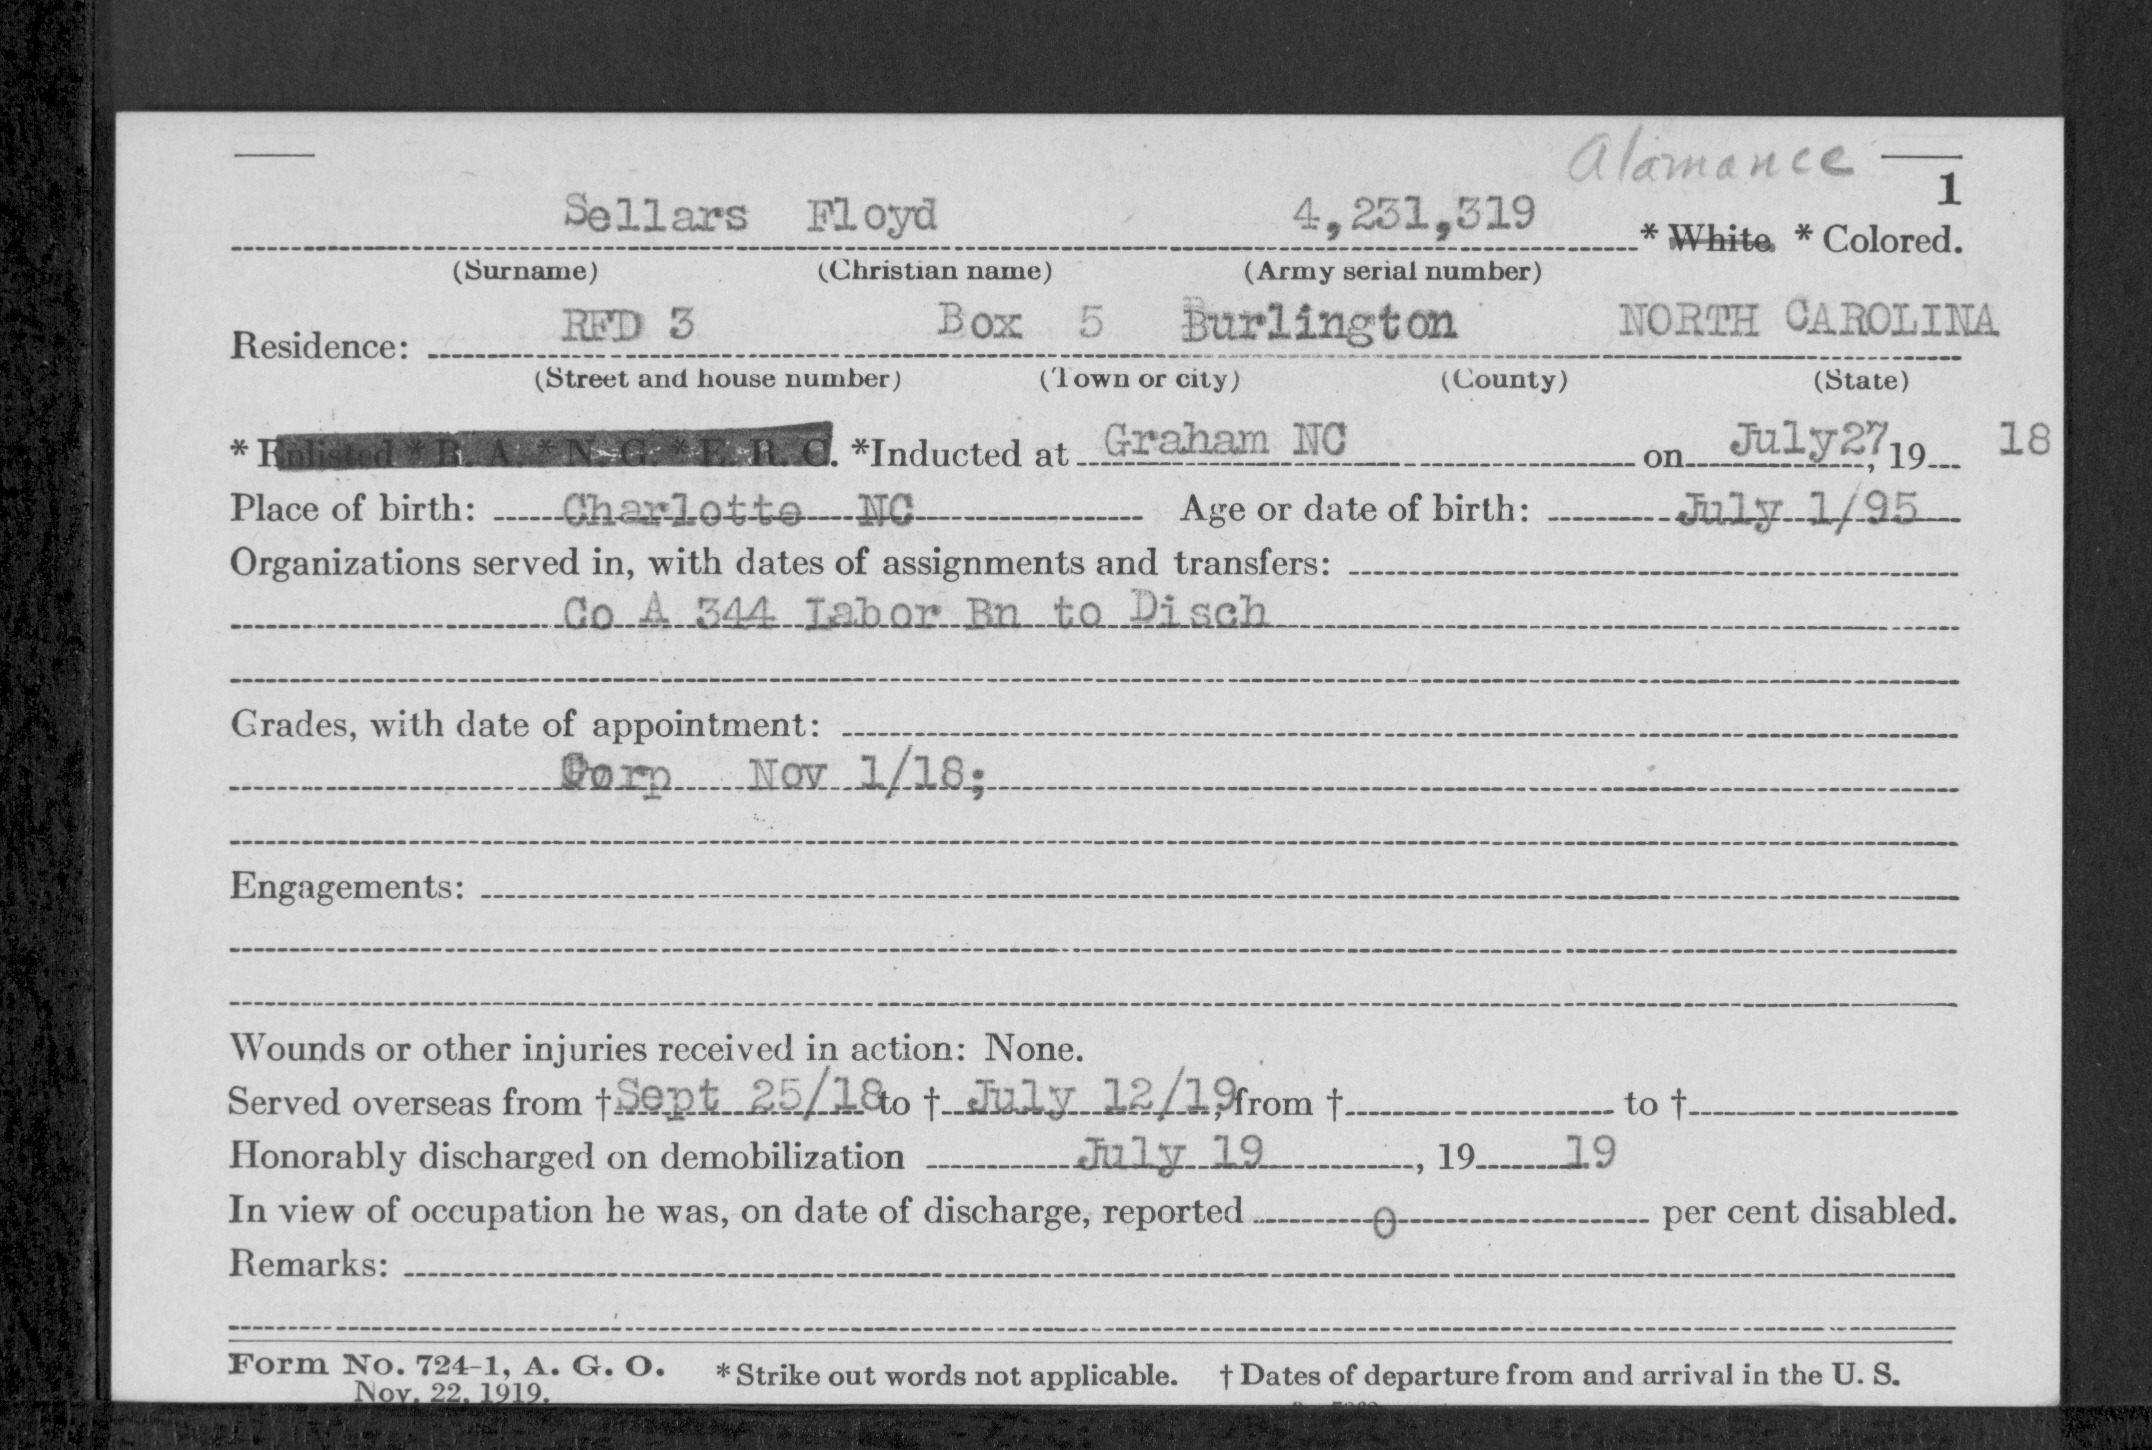 Alamance
1
Sellars Floyd 4,231,319 * White * Colored.
(Surname) (Christian name) (Army serial number)
Residence: RFD 3 Box 5 Burlington NORTH CAROLINA
(Street and house number) (Town or city) (County) (State)
* Enlisted * R. A. * N. G. * E. R. C. *Inducted at Graham NC on July 27, 19 18
Place of birth: Charlotte NC Age or date of birth: July 1/95
Organizations served in, with dates of assignments and transfers:
Co A 344 Labor Bn to Disch
Grades, with date of appointment:
Corp Nov 1/18;
Engagements:
Wounds or other injuries received in action: None.
Served overseas from † Sept 25/18 to † July 12/19, from † to †
Honorably discharged on demobilization July 19, 19 19
In view of occupation he was, on date of discharge, reported 0 per cent disabled.
Remarks:
Form No. 724-1, A. G. O. * Strike out words not applicable. † Dates of departure from and arrival in the U. S.
Nov. 22, 1919.